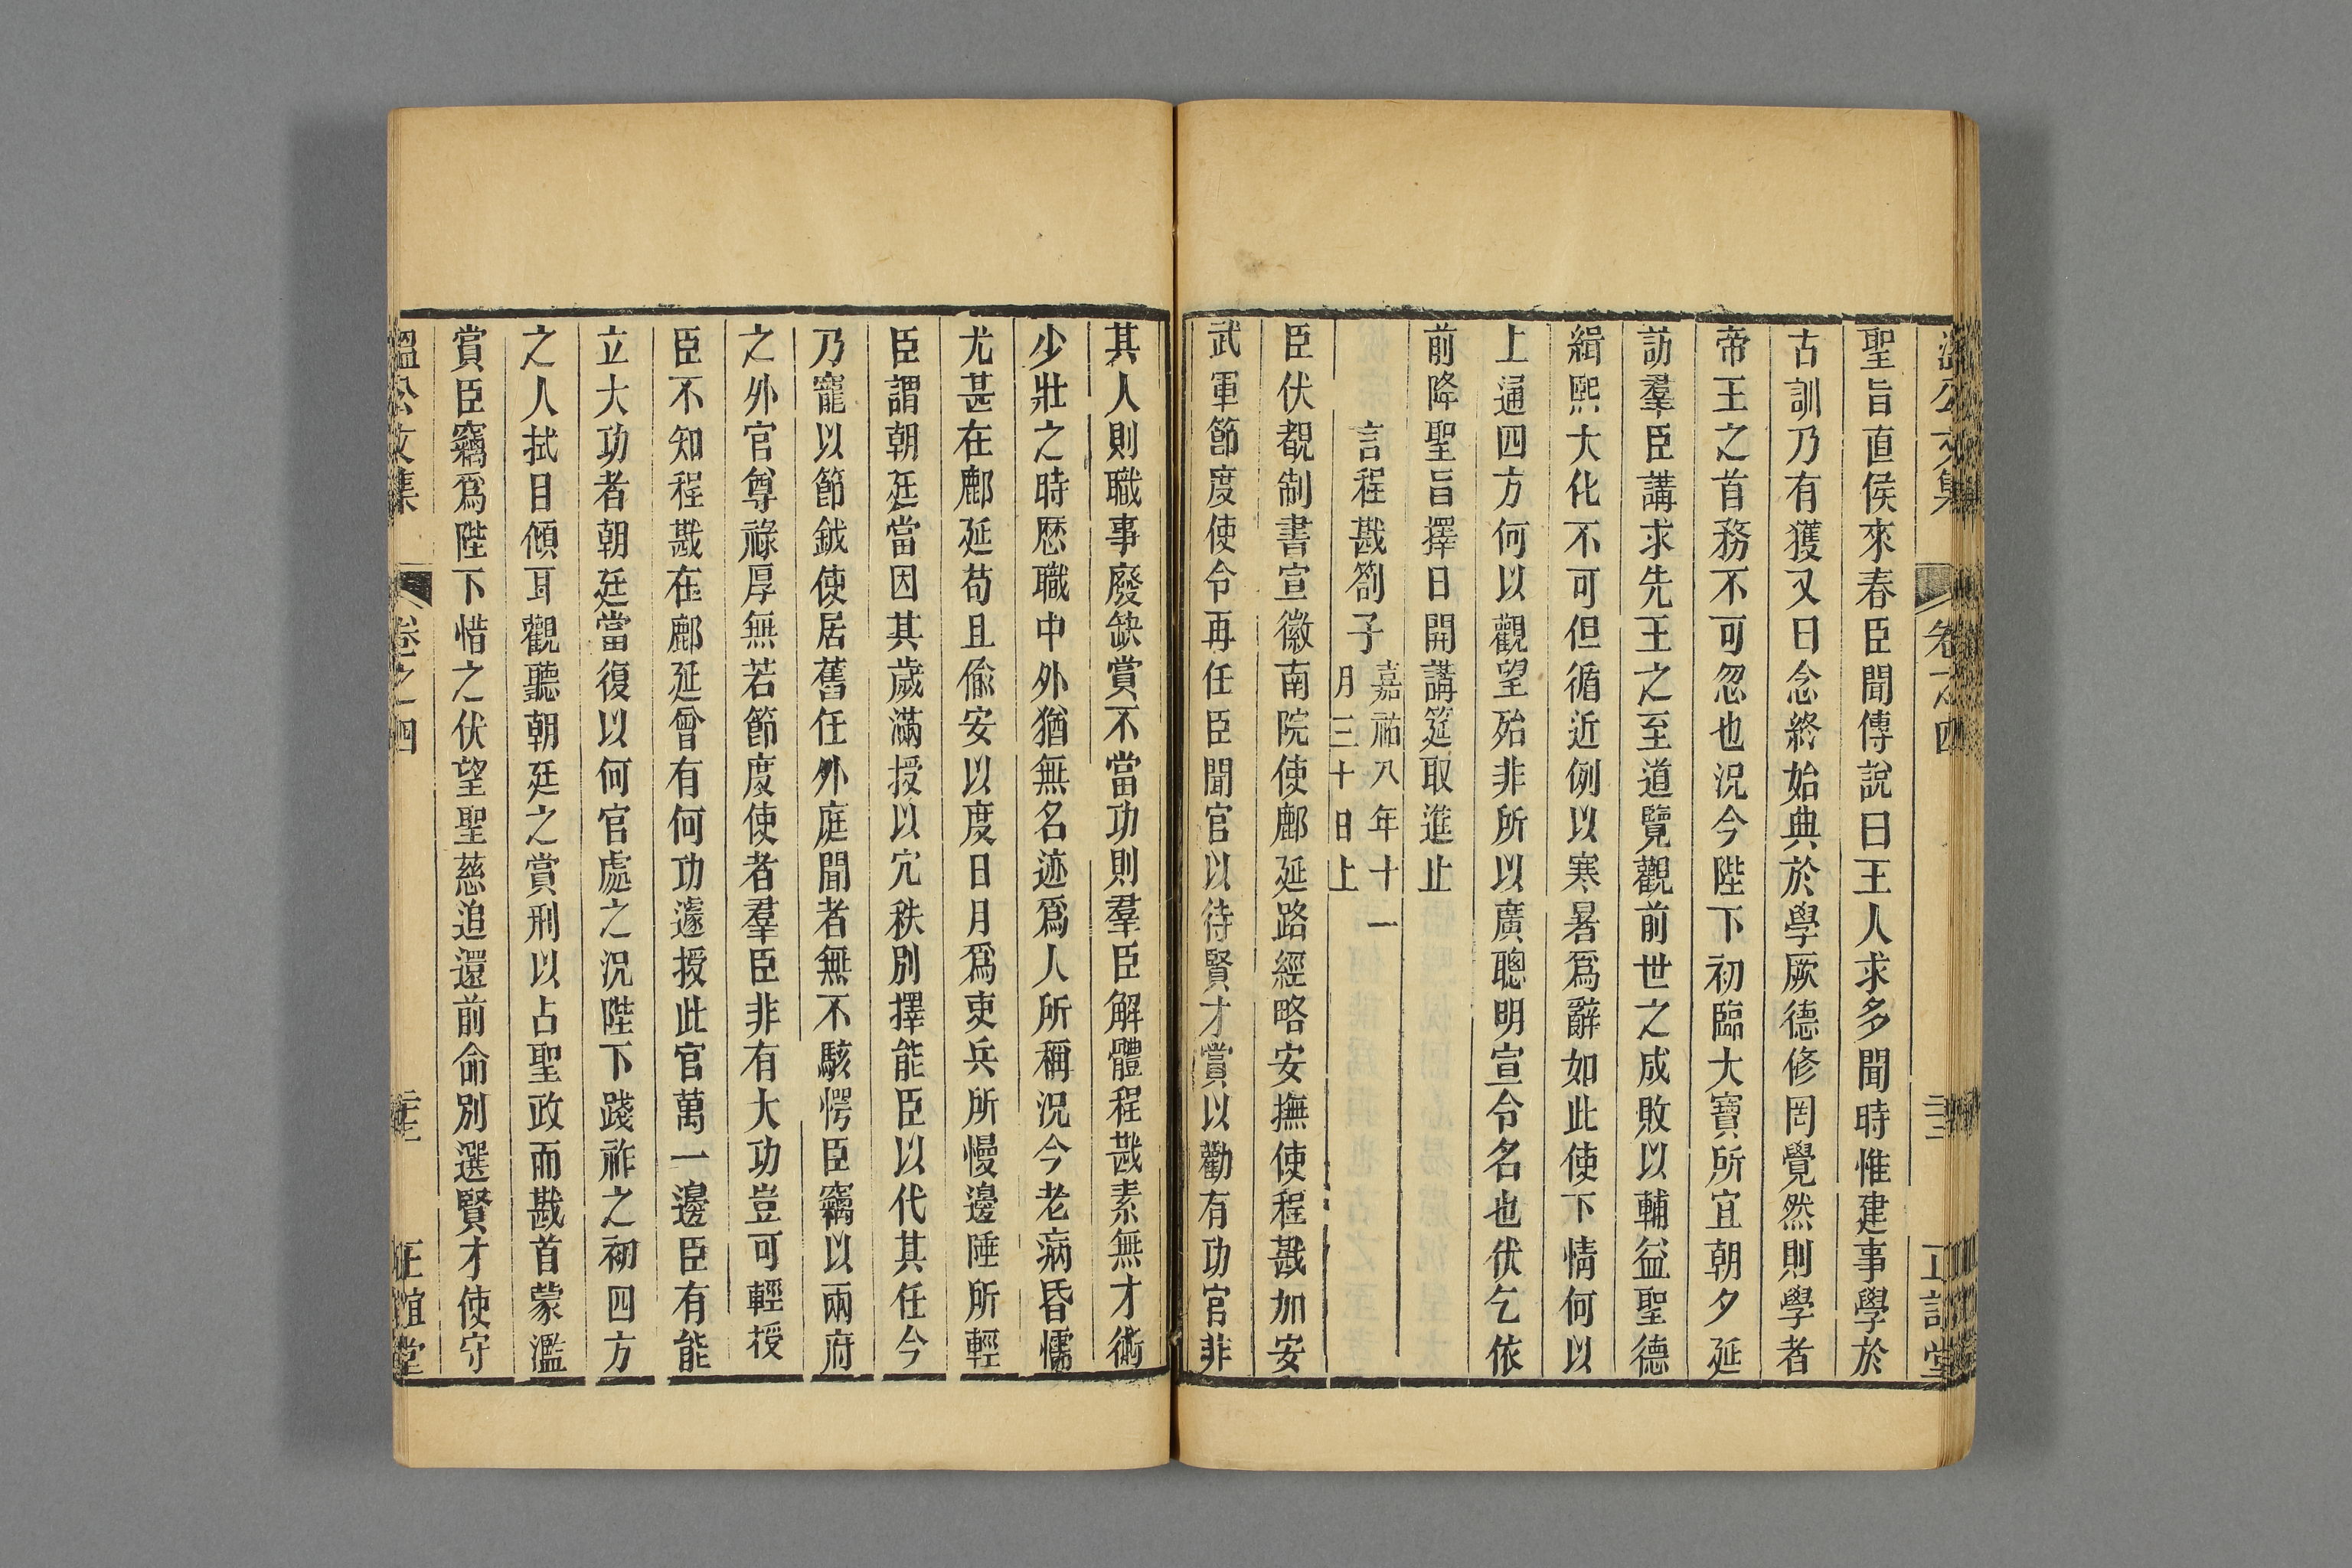 溫公文集 卷之四 二十三 正誼堂
聖旨直侯來春臣聞傳說曰王人求多聞時惟建事學於
古訓乃有獲又曰念終始典於學厥德修罔覺然則學者
帝王之首務不可忽也況今陛下初臨大寶所宜朝夕延
訪羣臣講求先王之至道覽觀前世之成敗以輔益聖德
緝熙大化不可但循近例以寒暑爲辭如此使下情何以
上通四方何以觀望殆非所以廣聰明宣令名也伏乞依
前降聖旨擇日開講筵取進止
言程戡劄子
嘉祐八年十一
月三十日上
臣伏覩制書宣徽南院使鄜延路經略安撫使程戡加安
武軍節度使令再任臣聞官以待賢才賞以勸有功官非
其人則職事廢缺賞不當功則羣臣解體程戡素無才術
少壯之時歷職中外猶無名迹爲人所稱況今老病昏懦
尤甚在鄜延苟且偸安以度日月爲吏兵所慢邊陲所輕
臣謂朝廷當因其歲滿授以宂秩別擇能臣以代其任今
乃寵以節鉞使居舊任外庭聞者無不駭愕臣竊以兩府
之外官尊祿厚無若節度使者羣臣非有大功豈可輕授
臣不知程戡在鄜延曾有何功遽授此官萬一邊臣有能
立大功者朝廷當復以何官處之況陛下踐祚之初四方
之人拭目傾耳觀聽朝廷之賞刑以占聖政而戡首蒙濫
賞臣竊爲陛下惜之伏望聖慈追還前命別選賢才使守
溫公文集 卷之四 二十三 正誼堂